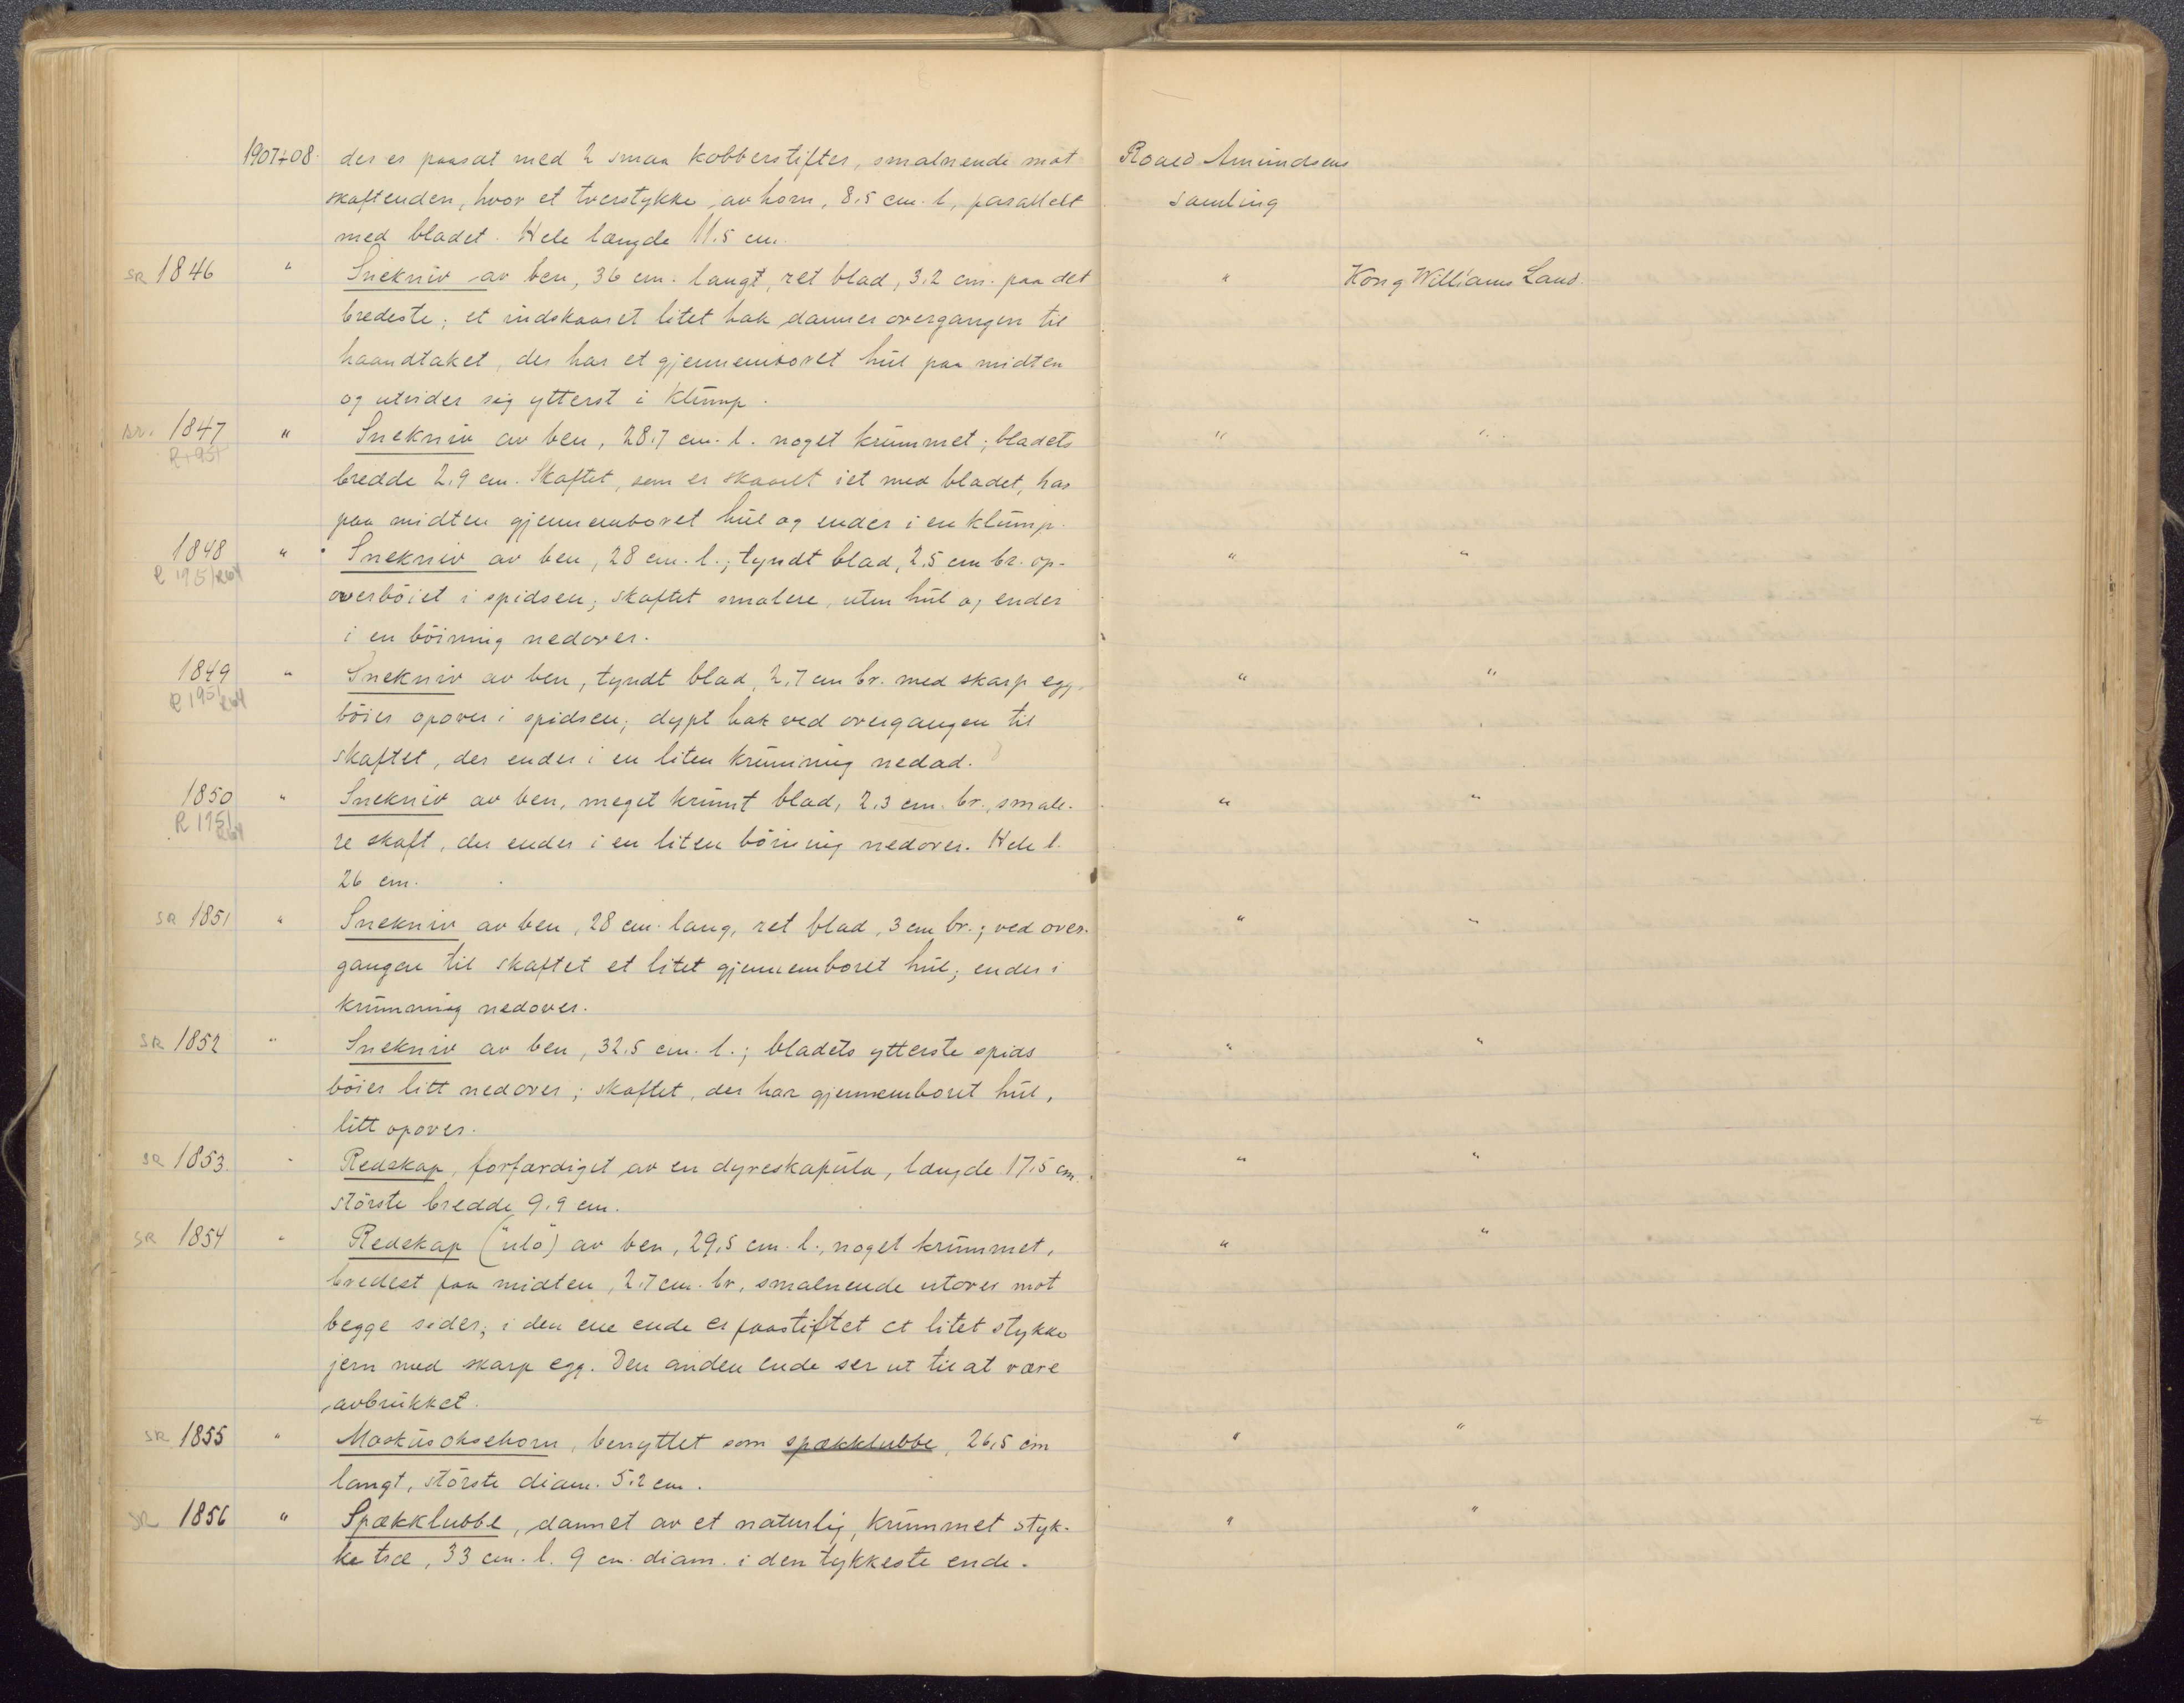 1907+08. der er paasat med 2 smaa kobberstifter, smalnende mot Roald Amundsens
skaftenden, hvor et tverstykke av horn, 8,5 cm. l, parallelt samling
med bladet. Hele længde 11.5 cm.
SR 1846 " Snekniv av ben, 36 cm. langt, ret blad, 3,2 cm. paa det " Kong Williams Land.
bredeste; et indskaaret litet hak danner overgangen til
haandtaket, der har et gjennemboret hul paa midten
og utvider sig ytterst i klump.
SR. 1847 " Snekniv av ben, 28.7 cm. l. noget krummet; bladets " "
R 1951
bredde 2.9 cm. Skaftet, som er skaaret i et med bladet, har
paa midten gjennemboret hul og ender i en klump.
1848 " Snekniv av ben, 28 cm. l.; tyndt blad, 2,5 cm br. op- " "
R 1951 R64
overböiet i spidsen; skaftet smalere, uten hul og ender
i en böining nedover.
1849 " Snekniv av ben, tyndt blad, 2,7 cm br. med skarp egg, " "
R 1951 R64
böier opover i spidsen; dypt hak ved overgangen til
skaftet, der ender i en liten krumning nedad.
1850 " Snekniv av ben, meget krumt blad, 2,3 cm. br., smale- " "
R 1951 R64
re skaft, der ender i en liten böining nedover. Hele l.
26 cm.
SR 1851 " Snekniv av ben, 28 cm. lang, ret blad, 3 cm br.; ved over- " "
gangen til skaftet et litet gjennemboret hul; ender i
krumning nedover.
SR 1852 " Snekniv av ben, 32.5 cm. l.; bladets ytterste spids " "
böier litt nedover; skaftet, der har gjennemboret hul,
litt opover.
SR 1853. " Redskap, forfærdiget av en dyreskapula, længde 17.5 cm. " "
störste bredde 9.9 cm.
SR 1854 " Redskap (ulö) av ben, 29,5 cm. l., noget krummet, " "
bredest paa midten, 2.7 cm. br, smalnende utover mot
begge sider; i den ene ende er paastiftet et litet stykke
jern med skarp egg. Den anden ende ser ut til at være
avbrukket.
SR 1855 " Moskusoksehorn, benyttet som spækklubbe, 26,5 cm " "
langt, störste diam. 5.2 cm.
SR 1856 " Spækklubbe, dannet av et naturlig, krummet styk- " "
ke træ, 33 cm. l. 9 cm. diam. i den tykkeste ende.